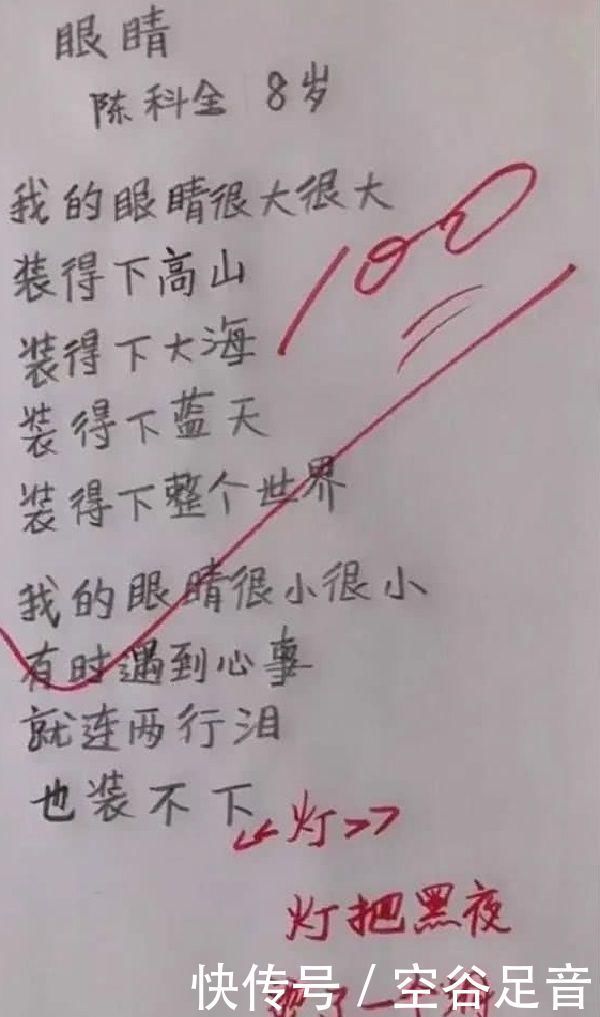 眼睛
陈科全 8岁
我的眼睛很大很大
装得下高山
装得下大海
装得下蓝天
装得下整个世界
我的眼睛很小很小
有时遇到心事
就连两行泪
也装不下
100
《灯》
灯把黑夜
了一个
快传号 / 空谷足音